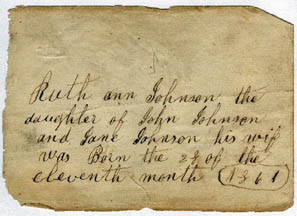 Ruth ann Johnson the
daughter of John Johnson
and Jane Johnson his wife
was Born the 28 of the
eleventh month 1861